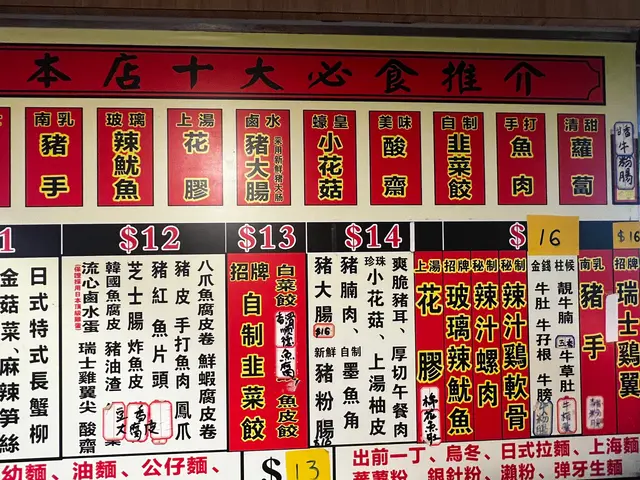 本店十大必食推介
南乳豬手
玻璃辣魷魚
上湯花膠
鹵水豬大腸
采用新鮮豬大腸
蠔皇小花菇
美味酸齋
自制韮菜餃
手打魚肉
清甜蘿蔔
1
日式特式長蟹柳
金菇菜、麻辣笋絲
$12
八爪魚腐皮卷 鮮蝦腐皮卷
豬皮 手打魚肉 鳳爪
豬紅 魚片頭
芝士腸 炸魚皮
韓國魚腐皮 豬油渣
流心鹵水蛋 瑞士雞翼尖 酸齋
$13
白菜餃
魚皮餃
招牌自制韮菜餃
$14
爽脆豬耳、厚切午餐肉
珍珠小花菇、上湯柚皮
豬腩肉、自制墨魚角
豬大腸
$16
新鮮豬粉腸
$
16
柱候靚牛腩
牛草肚
金錢牛肚 牛孖根 牛膀
秘制辣汁雞軟骨
秘制辣汁螺肉
招牌玻璃辣魷魚
上湯花膠
$16
南乳豬手
招牌瑞士雞翼
幼麵、油麵、公仔麵、
$
13
出前一丁、烏冬、日式拉麵、上海麵
蕃薯粉、銀針粉、瀨粉、弹牙生麵